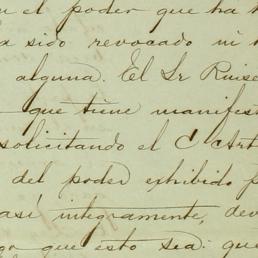 el poder que ha
sido revocado ni
alguna. El Sr Ruise
que tiene manifest
solicitando el C Art
del poder exhibido p
así integramente, dev
que esto sea: que